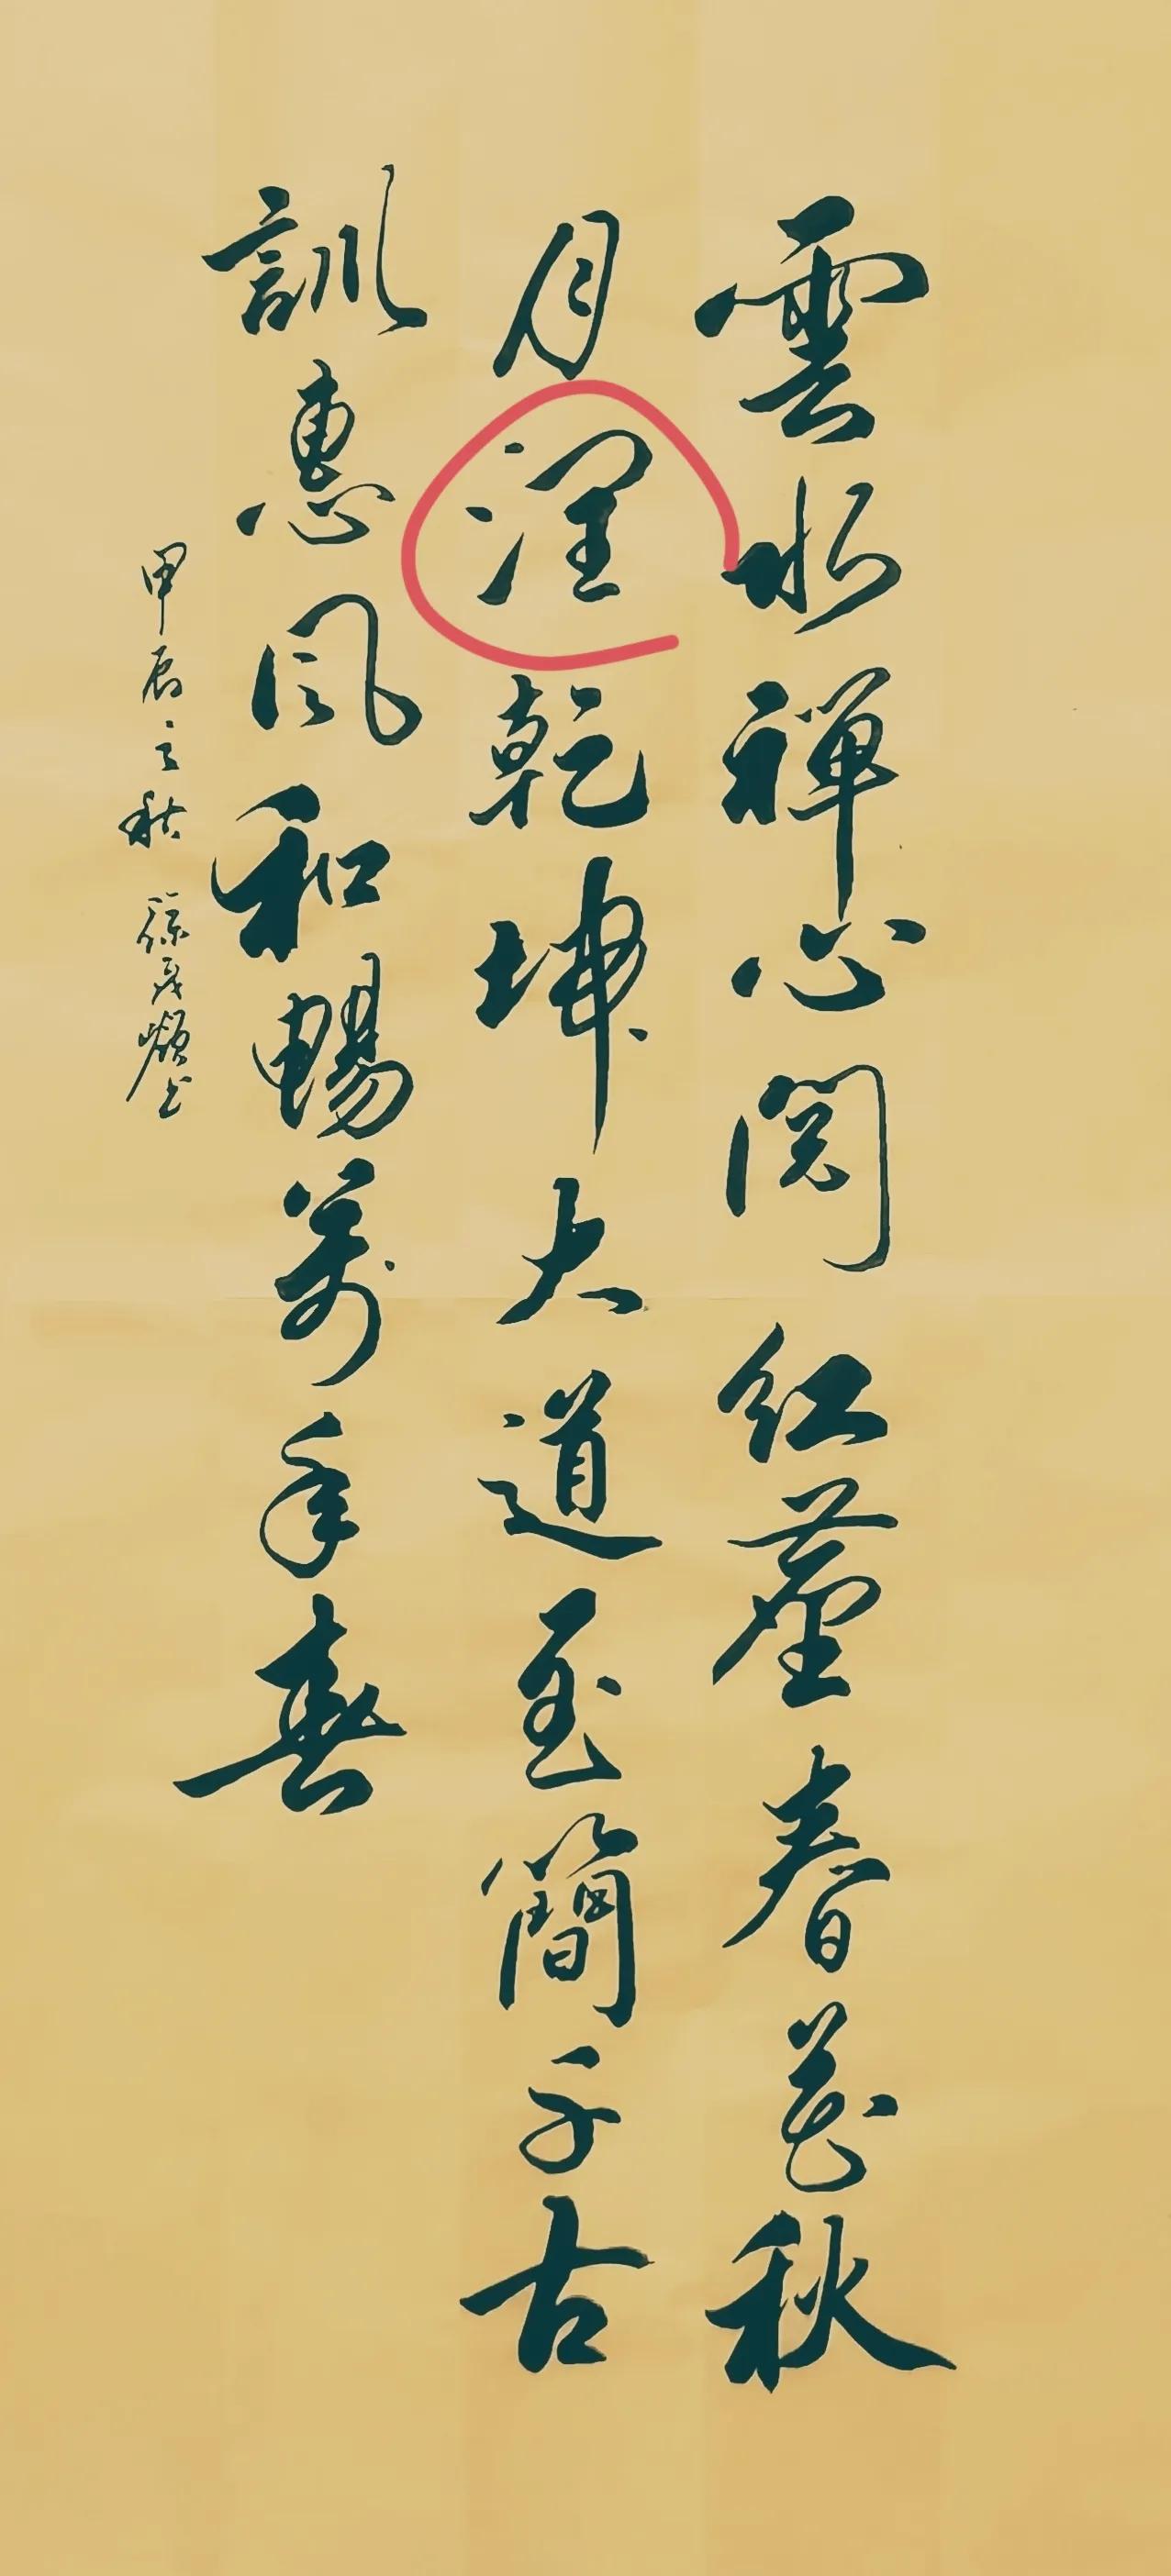 雲水禪心閱紅塵春花秋
月潤乾坤大道至簡千古
訓惠風和暢萬年春
甲辰之秋